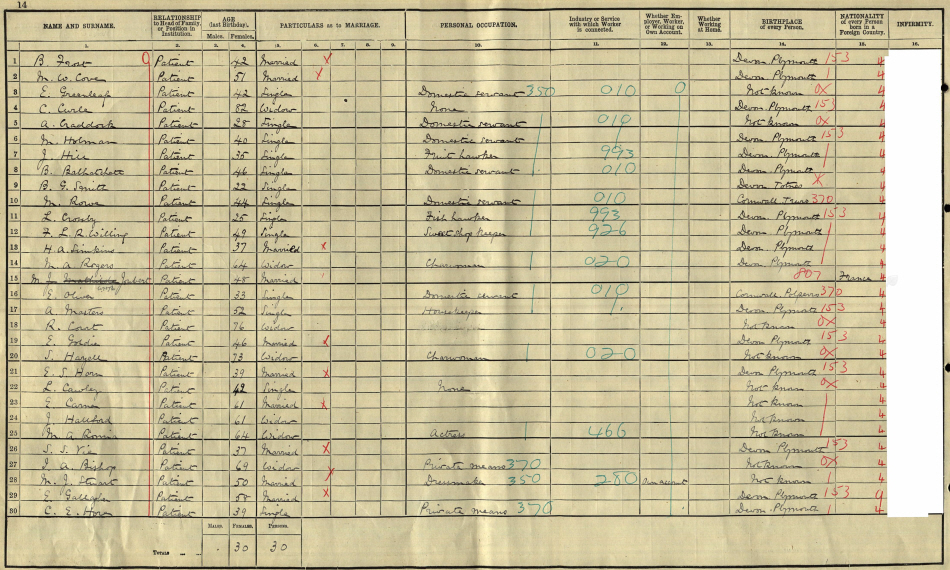 14
NAME AND SURNAME. RELATIONSHIP to Head of Family, or Position in Institution. AGE (last Birthday). PARTICULARS as to MARRIAGE. PERSONAL OCCUPATION. Industry or Service with which Worker is connected. Whether Employer, Worker, or Working on Own Account. Whether Working at Home. BIRTHPLACE of every Person. NATIONALITY of every Person born in a Foreign Country. INFIRMITY.
Males. Females.
1. 2. 3. 4. 5. 6. 7. 8. 9. 10. 11. 12. 13. 14. 15. 16.
1 B. Frost Patient 42 Married X Devon Plymouth 153 4
2 M. W. Cove Patient 51 Married X Devon Plymouth 4
3 E. Greenleaf Patient 42 Single Domestic servant 350 010 0 Not known 0X 4
4 C. Curle Patient 82 Widow None Devon Plymouth 153 4
5 A. Craddock Patient 28 Single Domestic servant 010 Not known 0X 4
6 M. Holman Patient 40 Single Domestic servant Devon Plymouth 153 4
7 J. Hill Patient 35 Single Fruit hawker 993 Devon Plymouth 4
8 B. Balhatchett Patient 46 Single Domestic servant 010 Devon Plymouth 4
9 B. G. Smith Patient 22 Single Devon Totnes X 4
10 M. Rowe Patient 44 Single Domestic servant 010 Cornwall Truro 370 4
11 L. Crosby Patient 25 Single Fish hawker 993 Devon Plymouth 153 4
12 F. L. R. Willing Patient 49 Single Sweet shop keeper 926 Devon Plymouth 4
13 H. A. Simkins Patient 37 Married X Devon Plymouth 4
14 M. A. Rogers Patient 64 Widow Charwoman 020 Devon Plymouth 4
15 M. Patient 48 Married 807 France 4
16 E. Oliver Patient 33 Single Domestic servant 010 Cornwall Polperro 370 4
17 A. Masters Patient 52 Single Housekeeper Devon Plymouth 153 4
18 R. Court Patient 76 Widow Not known 0X 4
19 E. Goldie Patient 46 Married X Devon Plymouth 153 4
20 S. Harzell Patient 73 Widow Charwoman 020 Not known 0X 4
21 E. S. Horn Patient 39 Married X Devon Plymouth 153 4
22 L. Cawley Patient 42 Single None Not known 0X 4
23 E. Carne Patient 61 Married X Not known 4
24 J. Halliford Patient 61 Widow Not known 4
25 M. A. Patient 64 Widow Actress 466 Not known 4
26 S. S. Patient 37 Married X Devon Plymouth 153 4
27 J. A. Bishop Patient 69 Widow Private means 370 Not known 0X 4
28 M. J. Stuart Patient 50 Married X Dressmaker 350 280 Own account Not known 4
29 E. Gallagher Patient 58 Married X Devon Plymouth 153 4
30 C. E. Horn Patient 39 Single Private means 370 Devon Plymouth 4
MALES. FEMALES. PERSONS.
TOTALS 30 30